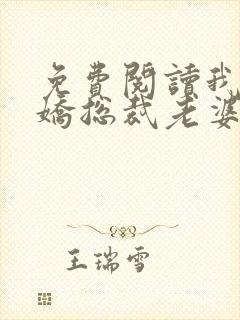 免費閱讀我
嬌總裁老婆
王瑞雪